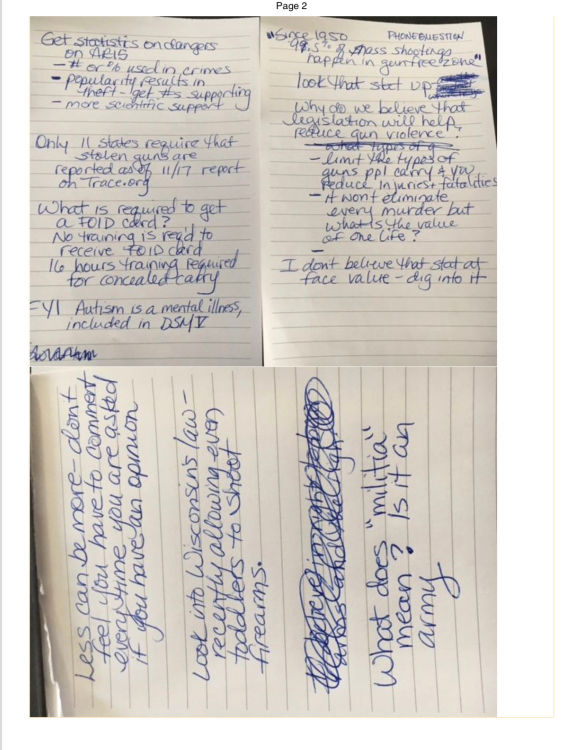 Page 2
Get statistics on dangers
on AR15
- # or % used in crimes
- popularity results in
theft - get #s supporting
- more scientific support
Only 11 states require that
stolen guns are
reported as of 11/17 report
on Trace.org
What is required to get
a FOID card?
No training is req'd to
receive FOID card
16 hours training required
for concealed carry
FYI Autism is a mental illness,
included in DSM V
"Since 1950 PHONE QUESTION
98.5% of mass shootings
happen in gun free zone"
look that stat up
Why do we believe that
legislation will help
reduce gun violence?
what types of g
- limit the types of
guns ppl carry & you
reduce injuries + fatalities
- it won't eliminate
every murder but
what is the value
of one life?
-
I dont believe that stat at
face value - dig into it
Less can be more - don't
feel you have to comment
every time you are asked
if you have an opinion
Look into Wisconsin's law -
recently allowing even
toddlers to shoot
firearms.
What does "militia"
mean? Is it an
army